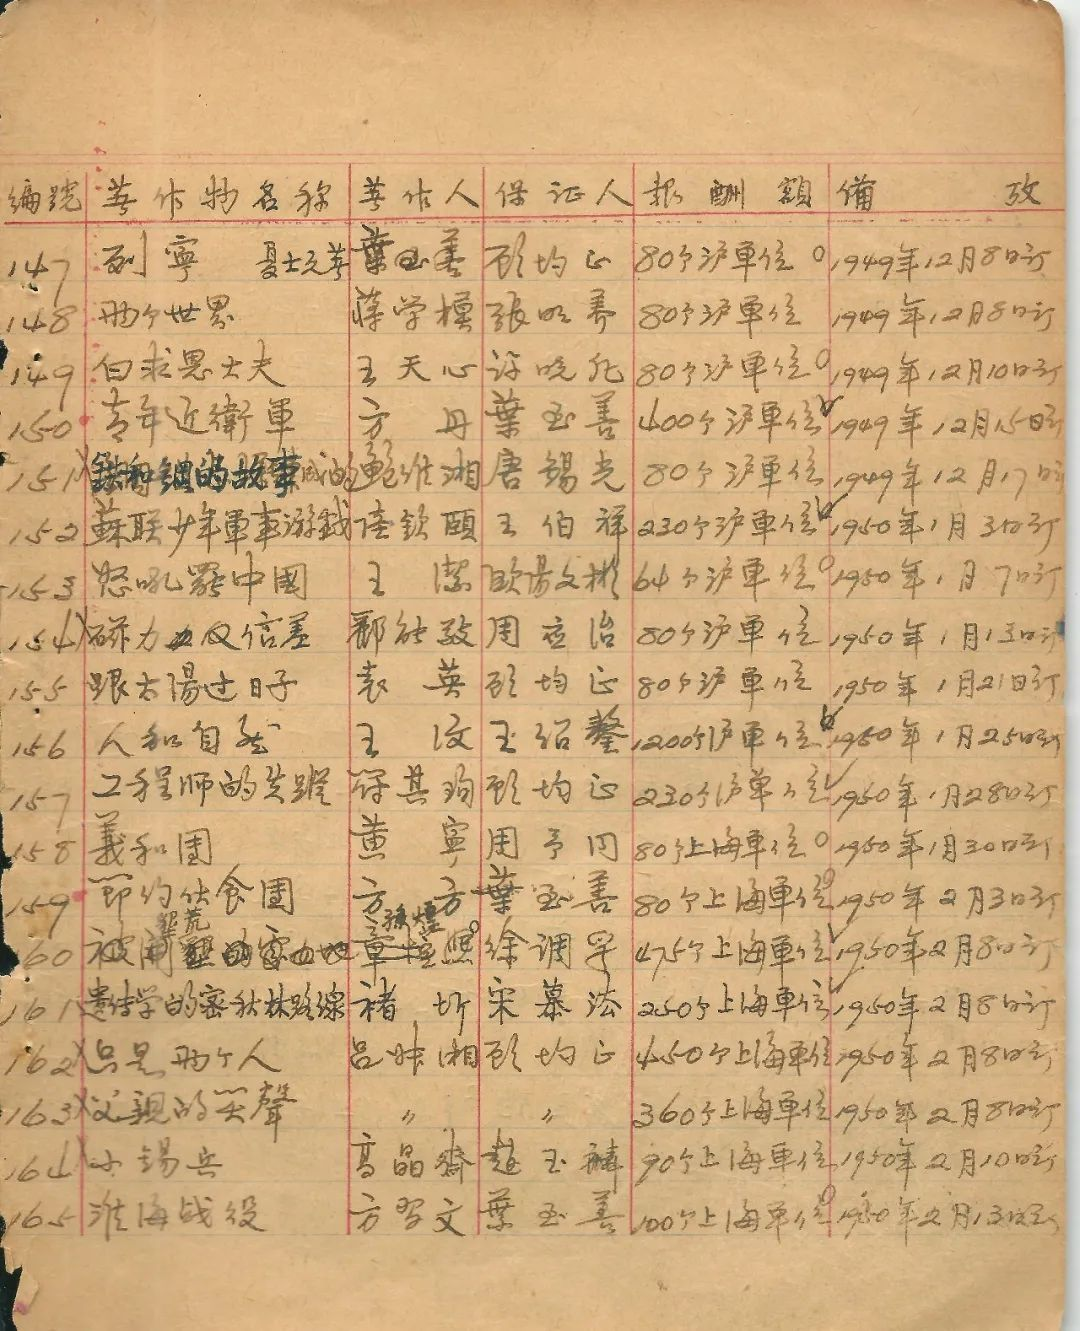 編號 著作物名称 著作人 保证人 报酬額 備攷
147 列寧 夏士元著 葉至善 顾均正 80个沪單位 1949年12月8日订
148 两个世界 蒋学模 張明养 80个沪單位 1949年12月8日订
149 白求恩大夫 王天心 許晚 80个沪單位 1949年12月10日订
150 青年近衛軍 方丹 葉至善 400个沪單位 1949年12月15日订
151 鉄和鋼的故事 鲍维湘 唐錫光 80个沪單位 1949年12月17日
152 蘇联少年軍事游戯 陸欽頤 王伯祥 230个沪單位 1950年1月3日订
153 怒吼罷中國 王潔 歐陽文彬 64个沪單位 1950年1月7日订
154 磁力 信差 鄒能敦 周 治 80个沪單位 1950年1月13日订
155 跟太陽过日子 袁英 顾均正 80个沪單位 1950年1月21日订
156 人和自然 王汶 王绍鏊 1200个沪單位 1950年1月25日订
157 工程师的失蹤 符其珣 顾均正 230个沪单位 1950年1月28日订
158 義和團 黄寧 周予同 80个上海單位 1950年1月30日订
159 節约伙食團 方方 葉至善 80个上海單位 1950年2月3日订
墾荒 孫煜
160 被開 的 章 熙 徐调孚 475个上海單位 1950年2月8日订
161 遺传学的密秋林路線 褚圻 宋慕法 250个上海單位 1950年2月8日订
162 只是两个人 吕肖湘 顾均正 450个上海單位 1950年2月8日订
163 父親的笑聲 〃 〃 360个上海單位 1950年2月8日订
164 小錫兵 高晶齋 趙玉 90个上海單位 1950年2月10日订
165 淮海战役 方習文 葉至善 100个上海單位 1950年2月13日订